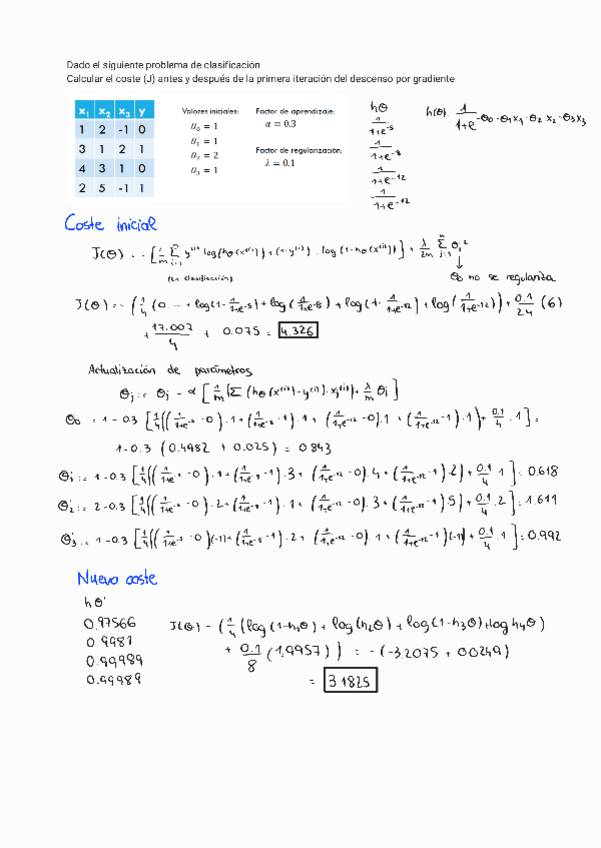 Dado el siguiente problema de clasificación
Calcular el coste (J) antes y después de la primera iteración del descenso por gradiente
x₁ x₂ x₃ y
1 2 -1 0
3 1 2 1
4 3 1 0
2 5 -1 1
Valores iniciales:
θ₀ = 1
θ₁ = 1
θ₂ = 2
θ₃ = 1
Factor de aprendizaje:
α = 0.3
Factor de regularización:
λ = 0.1
hθ
1/(1+e^-5)
1/(1+e^-8)
1/(1+e^-12)
1/(1+e^-12)
h(θ) 1/(1+e^-θ0-θ1x1-θ2x2-θ3x3)
Coste inicial
J(θ) = -[1/m Σ y⁽ⁱ⁾ log(hθ(x⁽ⁱ⁾)) + (1-y⁽ⁱ⁾) · log(1-hθ(x⁽ⁱ⁾))] + λ/2m Σ θj²
(en clasificación)
θ0 no se regulariza
J(θ) = -(1/4 (0 ... + log(1- 1/(1+e^-5)) + log(1/(1+e^-8)) + log(1- 1/(1+e^-12)) + log(1/(1+e^-12))) + 0.1/24 (6)
+ 17.007/4 + 0.075 = 4.326
Actualización de parámetros
θj := θj - α [1/m (Σ (hθ(x⁽ⁱ⁾) - y⁽ⁱ⁾) · xj⁽ⁱ⁾) + λ/m θj]
θ0 = 1 - 0.3 [1/4((1/(1+e^-5) - 0) · 1 + (1/(1+e^-8) - 1) · 1 + (1/(1+e^-12) - 0) · 1 + (1/(1+e^-12) - 1) · 1) + 0.1/4 · 1] =
1 - 0.3 (0.4982 + 0.025) = 0.843
θ1 := 1 - 0.3 [1/4((1/(1+e^-5) - 0) · 1 + (1/(1+e^-8) - 1) · 3 + (1/(1+e^-12) - 0) · 4 + (1/(1+e^-12) - 1) · 2) + 0.1/4 · 1] = 0.618
θ2 := 2 - 0.3 [1/4((1/(1+e^-5) - 0) · 2 + (1/(1+e^-8) - 1) · 1 + (1/(1+e^-12) - 0) · 3 + (1/(1+e^-12) - 1) 5) + 0.1/4 · 2] = 1.611
θ3 := 1 - 0.3 [1/4((1/(1+e^-5) - 0)(-1) + (1/(1+e^-8) - 1) · 2 + (1/(1+e^-12) - 0) · 1 + (1/(1+e^-12) - 1)(-1)) + 0.1/4 · 1] = 0.992
Nuevo coste
hθ'
0.97566
0.9981
0.99989
0.99989
J(θ) - (1/4 (log(1-h1θ) + log(h2θ) + log(1-h3θ) + log h4θ)
+ 0.1/8 (1.9957)) = -(-3.2075 + 0.0249)
= 3.1825